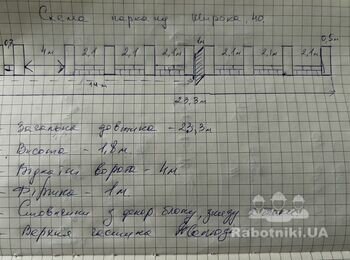 Схема паркану Широка, 40
0,7 4м 2,1 2,1 2,1м 1м 2,1м 2,1м 2,1м 0,5м
14м
23,3м
- Загальна довжина - 23,3м
- Висота - 1,8м
- Відкатні ворота - 4м
- Фіртка - 1м
- Стовпчики з декор блоку,
- Верхня частина
Rabotniki.UA